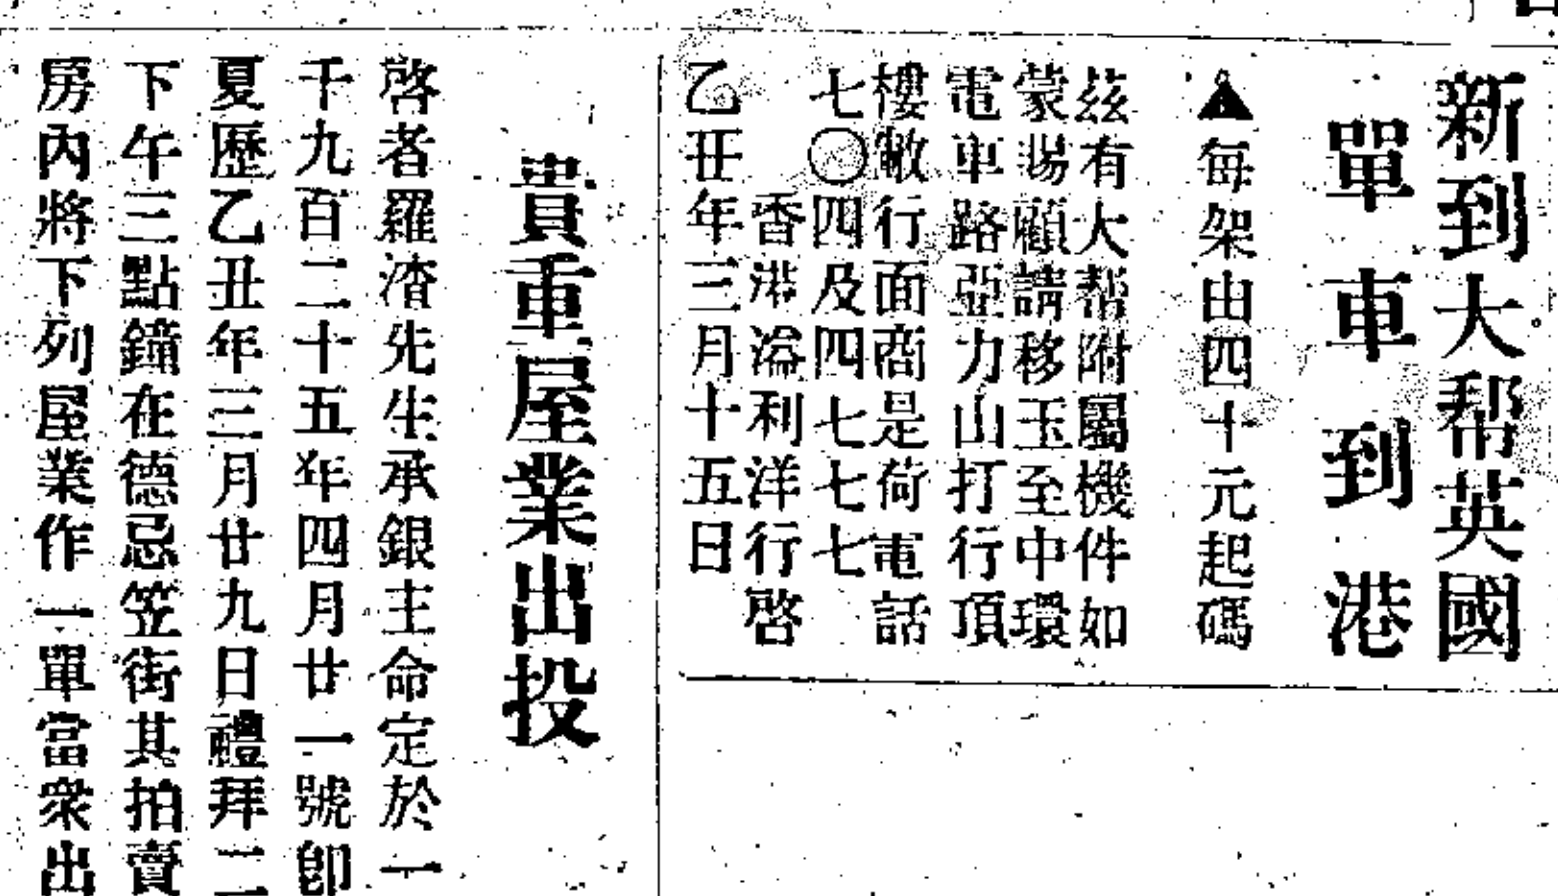 新到大帮英國
單車到港
▲每架由四十元起碼
茲有大帮附屬機件如
蒙賜顧請移玉至中環
電車路亞力山打行頂
樓敝行面商是荷電話
七〇四及四七七七
香港溢利洋行啓
乙丑年三月十五日
貴重屋業出投
啓者羅渣先生承銀主命定於一
千九百二十五年四月廿一號即
夏歷乙丑年三月廿九日禮拜二
下午三點鐘在德忌笠街其拍賣
房內將下列屋業作一單當衆出